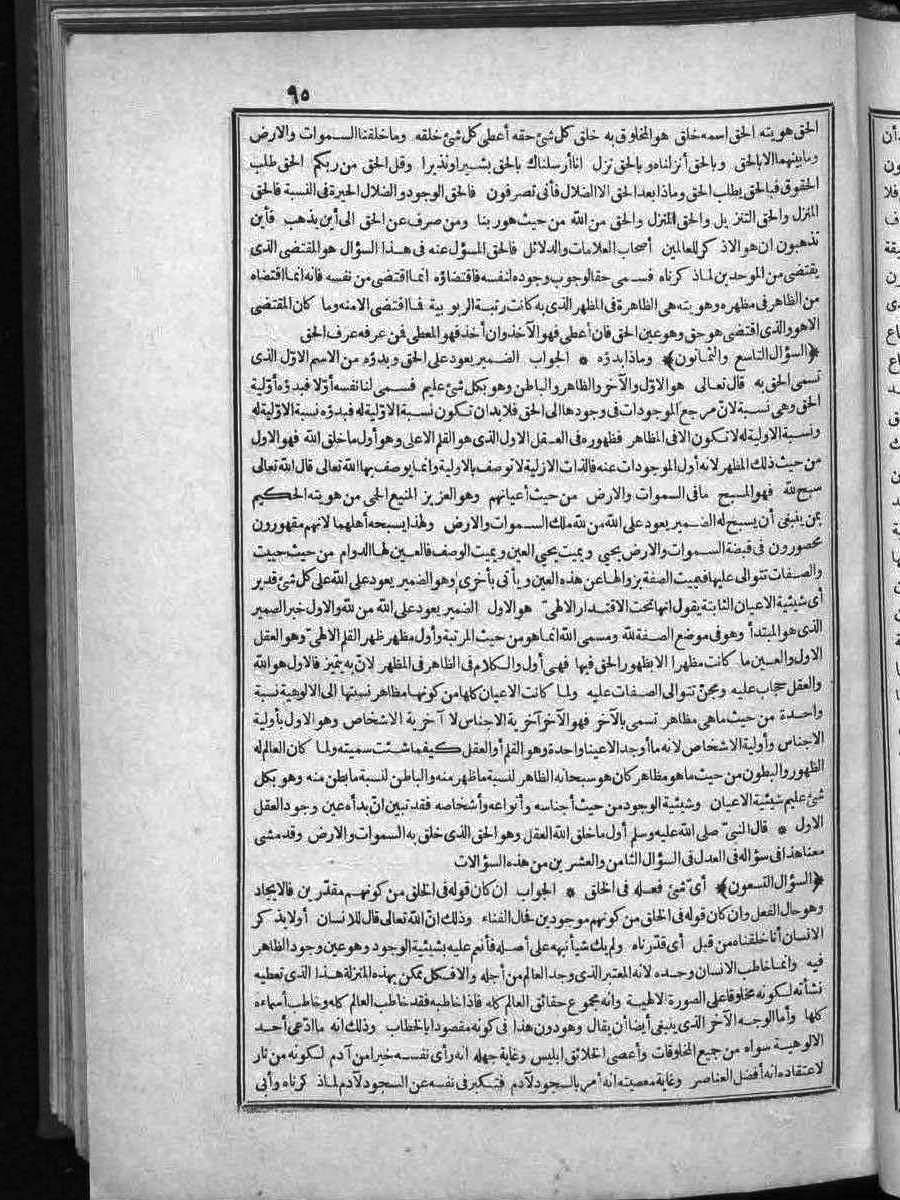 ٩٥
الحق هويته الحق اسمه خلق هو المخلوق به خلق كل شئ حقه أعطى كل شئ خلقه وما خلقنا السموات والارض
وما بينهما الا بالحق وبالحق أنزلناه وبالحق نزل انا أرسلناك بالحق بشيرا ونذيرا وقل الحق من ربكم الحق طلب
الحقوق فبالحق يطلب الحق وماذا بعد الحق الا الضلال فأنى تصرفون فالحق الوجود والضلال الحيرة فى النسبة فالحق
المنزل والحق التنزيل والحق المنزل والحق من الله من حيث هو ربنا ومن صرف عن الحق الى أين يذهب فأين
تذهبون ان هو الا ذكر للعالمين أصحاب العلامات والدلائل فالحق المسؤل عنه فى هذا السؤال هو المقتضى الذى
يقتضى من الموحدين لماذكرناه فسمى حقا لوجوب وجوده لنفسه فاقتضاؤه انما اقتضى من نفسه فانه انما اقتضاه
من الظاهر فى مظهره وهويته هى الظاهرة فى المظهر الذى به كانت رتبة الربوبية فما اقتضى الا منه وما كان المقتضى
الا هو والذى اقتضى هو حق وهو عين الحق فان أعطى فهو الآخذ وان أخذ فهو المعطى فمن عرفه عرف الحق
﴿السؤال التاسع والثمانون﴾ وماذا بدؤه * الجواب الضمير يعود على الحق وبدؤه من الاسم الاول الذى
تسمى الحق به قال تعالى هو الاوّل والآخر والظاهر والباطن وهو بكل شئ عليم فسمى لنا نفسه أوّلا فبدؤه أوّلية
الحق وهى نسبة لانّ مرجع الموجودات فى وجودها الى الحق فلا بد ان تكون نسبة الاوّلية له فبدؤه نسبة الاوّلية له
ونسبة الاولية له لا تكون الا فى المظاهر فظهوره فى العقل الاول الذى هو القلم الاعلى وهو أول ما خلق الله فهو الاول
من حيث ذلك المظهر لانه أول الموجودات عنه فالذات الازلية لا توصف بالاولية وانما يوصف بها الله تعالى قال الله تعالى
سبح لله فهو المسبح ما فى السموات والارض من حيث أعيانهم وهو العزيز المنيع الحمى من هويته الحكيم
بمن ينبغى أن يسبح له الضمير يعود على الله من لله ملك السموات والارض ولهذا يسبحه أهلهما لانهم مقهورون
محصورون فى قبضة السموات والارض يحيى ويميت يحيى العين ويميت الوصف فالعين لها الدوام من حيث حييت
والصفات تتوالى عليها فيميت الصفة بزوالها عن هذه العين ويأتى بأخرى وهو الضمير يعود على الله على كل شئ قدير
أى شيئية الاعيان الثابتة يقول انها تحت الاقتدار الالهىّ هو الاول الضمير يعود على الله من لله والاول خبر الضمير
الذى هو المبتدأ وهو فى موضع الصفة لله ومسمى الله انما هو من حيث المرتبة وأول مظهر ظهر القلم الالهىّ وهو العقل
الاول والعين ما كانت مظهرا الا بظهور الحق فيها فهى أول والكلام فى الظاهر فى المظهر لانّ به يتميز فالاول هو الله
والعقل حجاب عليه ومجنّ تتوالى الصفات عليه ولما كانت الاعيان كلها من كونها مظاهر نسبتها الى الالوهية نسبة
واحدة من حيث ما هى مظاهر تسمى بالآخر فهو الآخر آخرية الاجناس لا آخرية الاشخاص وهو الاول بأولية
الاجناس وأولية الاشخاص لانه ما أوجد الا عينا واحدة وهو القلم أو العقل كيفما شئت سميته ولما كان العالم له
الظهور والبطون من حيث ما هو مظاهر كان هو سبحانه الظاهر لنسبة ما ظهر منه والباطن لنسبة ما بطن منه وهو بكل
شئ عليم شيئية الاعيان وشيئية الوجود من حيث أجناسه وأنواعه وأشخاصه فقد تبين انّ بدأه عين وجود العقل
الاول * قال النبىّ صلى الله عليه وسلم أول ما خلق الله العقل وهو الحق الذى خلق به السموات والارض وقد مشى
معنا هذا فى سؤاله فى العدل فى السؤال الثامن والعشرين من هذه السؤالات
﴿السؤال التسعون﴾ أىّ شئ فعله فى الخلق * الجواب ان كان قوله فى الخلق من كونهم مقدّرين فالايجاد
وهو حال الفعل وان كان قوله فى الخلق من كونهم موجودين فحال الفناء وذلك انّ الله تعالى قال للانسان أولا يذكر
الانسان أنا خلقناه من قبل أى قدّرناه ولم يك شيأ نبهه على أصله فأنعم عليه بشيئية الوجود وهو عين وجود الظاهر
فيه وانما خاطب الانسان وحده لانه المعتبر الذى وجد العالم من أجله والا فكل ممكن بهذه المنزلة هذا الذى تعطيه
نشأته لكونه مخلوقا على الصورة الالهية وانه مجموع حقائق العالم كله فاذا خاطبه فقد خاطب العالم كله وخاطب أسماءه
كلها وأما الوجه الآخر الذى ينبغى أيضا أن يقال وهو دون هذا فى كونه مقصودا بالخطاب وذلك انه ما ادّعى أحد
الالوهية سواه من جميع المخلوقات وأعصى الخلائق ابليس وغاية جهله انه رأى نفسه خيرا من آدم لكونه من نار
لاعتقاده انه أفضل العناصر وغاية معصيته انه أمر بالسجود لآدم فتكبر فى نفسه عن السجود لآدم لماذكرناه وأبى